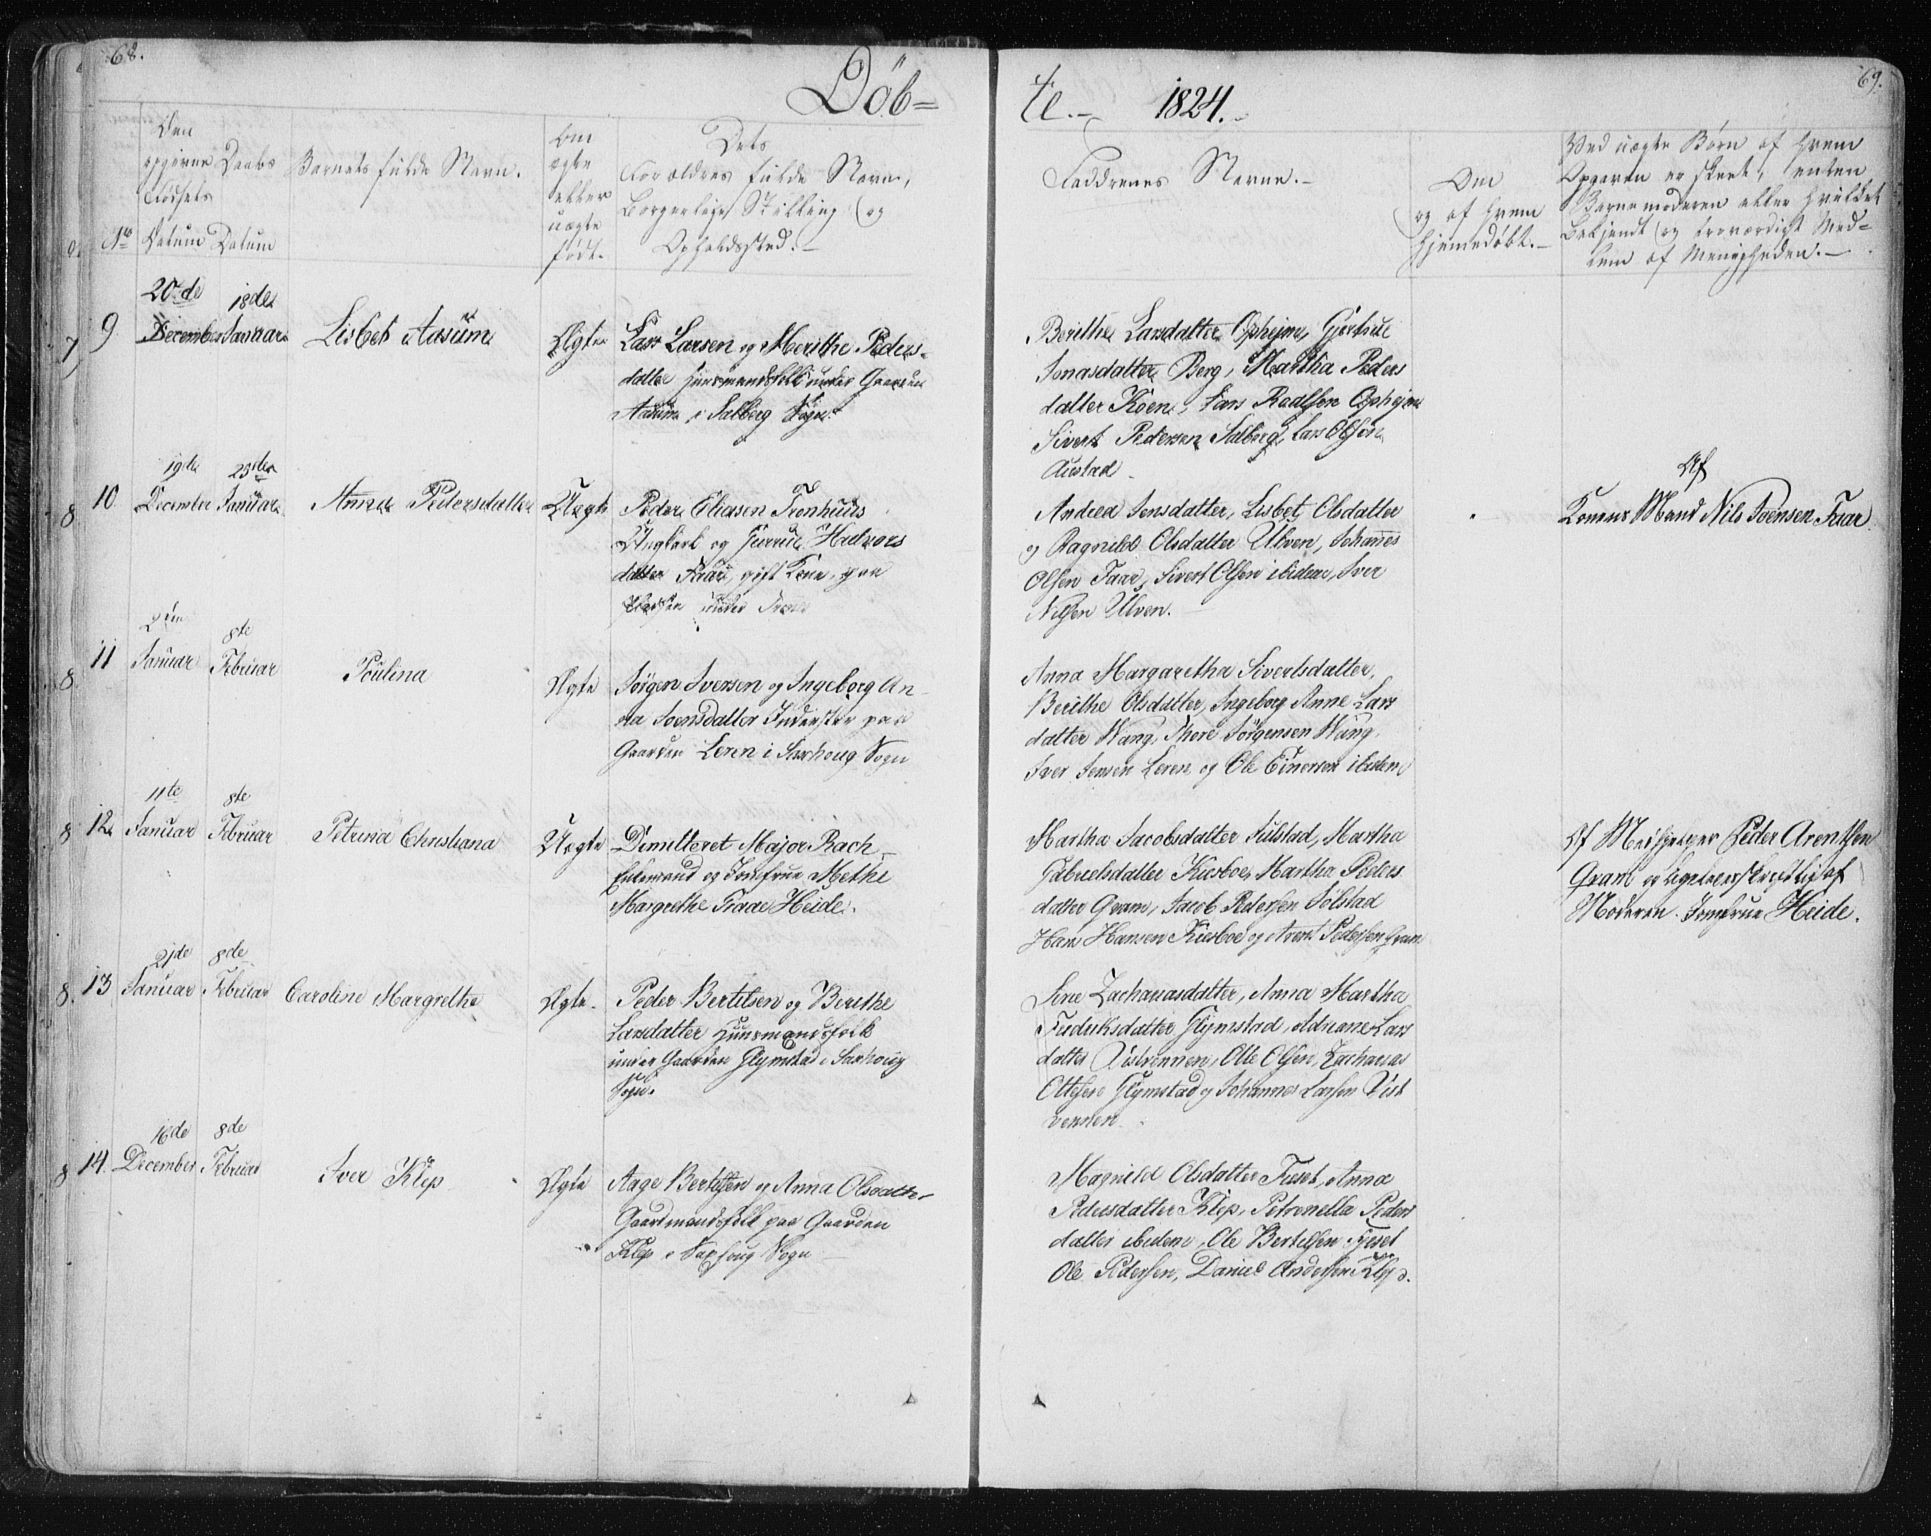 68.
Döb=
te. 1824.
69.
No
Den opgivne Fødsels Datum
Daabs Datum
Barnets fulde Navn.
Om ægte eller uægte født.
Dets
Forældres fulde Navn,
Borgerlige Stilling og
Opholdssted.
Faddrenes Navne.
Om
og af hvem
hjemedøbt.
Ved uægte Børn af hvem
Opgaven er skeet, enten
Barnemoderen eller hvilket
bekjendt og troværdigt Med=
lem af Menigheden.
7,
9
20de
December
18de
Januar
Lisbet Aasüm
Ægte
Lars Larsen og Merithe Peders-
datter Huusmandsfolk under Gaarden
Aasüm i Salberg Sogn
Berithe Larsdatter Opheim, Gjertrue
Jonasdatter Berg, Martha Peders
datter Koen, Lars Roalsen Opheim
Sivert Pedersen Salberg, Lars Olsen
Austad
8
10
19de
December
25de
Januar
Anna Petersdatter
Uægte
Peder Eliasen Tronhuus
Ungkarl og Gurrue Halvors
datter Faar, gift Kone, paa
under
Andrea Jensdatter, Lisbet Olsdatter
og Ragnild Olsdatter Ulven, Johannes
Olsen Faar, Sivert Olsen ibidem, Iver
Nilsen Ulven.
Af
Konens Mand Nils Joensen Faar
8
11
Januar
8de
Februar
Poulina
Ægte
Jørgen Iversen og Ingeborg An-
na Joensdatter Inderster paa
Gaarden Leren i Saxhoug Sogn
Anna Margaretha Sivertsdatter,
Berithe Olsdatter, Ingeborg Anne Lars
datter Wang, Thore Jørgensen Wang,
Iver Jensen Leren og Ole Einersen ibidem
8
12
11te
Januar
8de
Februar
Petrina Christiana
Uægte
Dimitteret Major Rach
Enkemand og Jomfrue Methe
Margrethe Traae Heide.
Martha Jacobsdatter Sulstad, Martha
Gabrielsdatter Kiesboe, Martha Peders
datter Gram, Jacob Pedersen Solstad
Hans Hansen Kiesboe og Arent Pedersen Gram
Af Medhjelper Peder Arentsen
Gram og af
Moderen Jomfrue Heide.
8.
13
21de
Januar
8de
Februar
Caroline Margrethe
Ægte
Peder Bertelsen og Berithe
Larsdatter Huusmandsfolk
under Gaarden Glymstad i Saxhoug
Sogn.
Sirie Zachariasdatter, Anna Martha
Fredriksdatter Glymstad, Adriane Lars
datter Vistvennen, Otte Olsen, Zacharias
Ottesen Glymstad og Johannes Larsen Vist
vennen.
8
14.
16de
December
8de
Februar
Iver Klep
Ægte
Aage Bertelsen og Anna Olsdatter
Gaardmandsfolk paa Gaarden
Klep i Saxhoug Sogn
Magnild Olsdatter Tuset, Anna
Pedersdatter Klep, Petronella Peders
datter ibidem, Ole Bertelsen Tuset
Ole Pedersen, Daniel Andersen Klep.